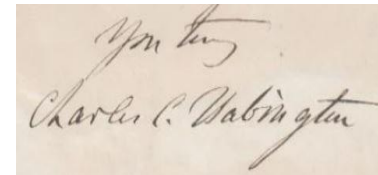 You truly
Charles C. Babington